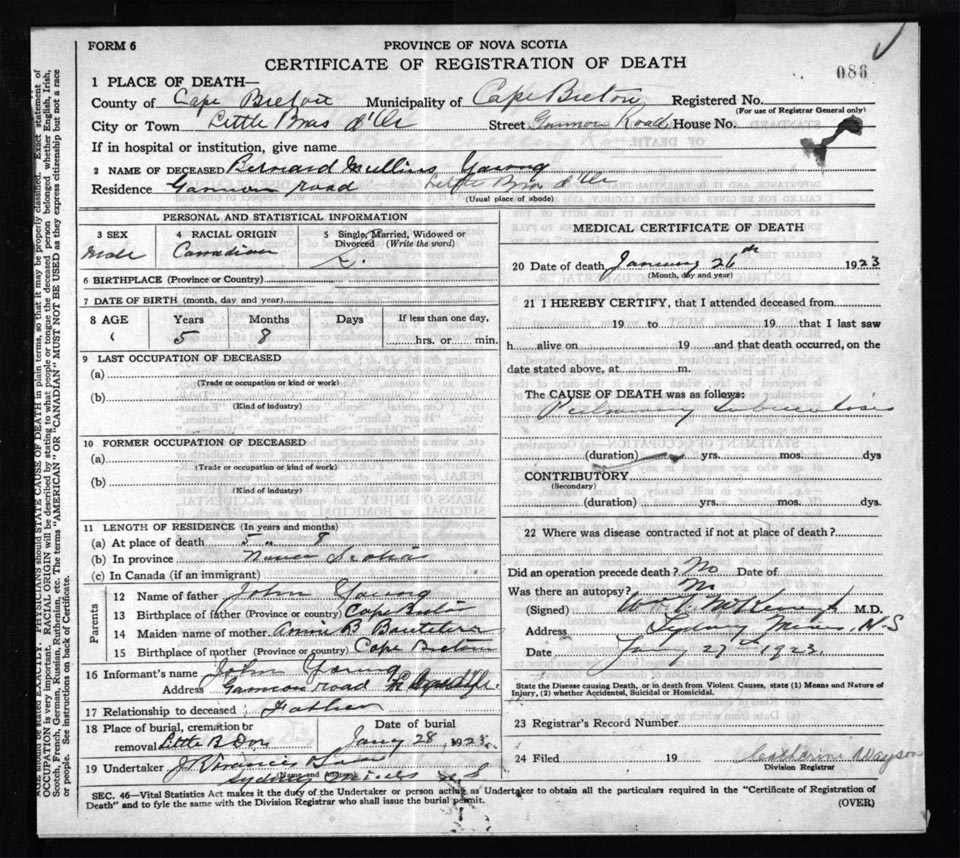 FORM 6
PROVINCE OF NOVA SCOTIA
CERTIFICATE OF REGISTRATION OF DEATH
086
1 PLACE OF DEATH—
County of Cape Breton Municipality of Cape Breton Registered No.
(For use of Registrar General only)
City or Town Little Bras d'Or Street Gannon Road House No.
If in hospital or institution, give name
2 NAME OF DECEASED Bernard Mullins Young
Residence Gannon road Little Bras d'Or
(Usual place of abode)
PERSONAL AND STATISTICAL INFORMATION
3 SEX 4 RACIAL ORIGIN 5 Single, Married, Widowed or Divorced (Write the word)
Male Canadian S.
6 BIRTHPLACE (Province or Country)
7 DATE OF BIRTH (month, day and year)
8 AGE Years Months Days If less than one day,
5 8 hrs. or min.
9 LAST OCCUPATION OF DECEASED
(a)
(Trade or occupation or kind or work)
(b)
(Kind of industry)
10 FORMER OCCUPATION OF DECEASED
(a)
(Trade or occupation or kind of work)
(b)
(Kind of industry)
11 LENGTH OF RESIDENCE (In years and months)
(a) At place of death 5 " 8
(b) In province Nova Scotia
(c) In Canada (if an immigrant)
Parents
12 Name of father John Young
13 Birthplace of father (Province or country) Cape Breton
14 Maiden name of mother Annie B
15 Birthplace of mother (Province or country) Cape Breton
16 Informant's name John Young
Address Gannon road
17 Relationship to deceased Father
18 Place of burial, cremation or removal Little B Dor
Date of burial
Jany 28 1923
19 Undertaker
(Name and address)
Sydney Mines N S
MEDICAL CERTIFICATE OF DEATH
20 Date of death January 26th 1923
(Month, day and year)
21 I HEREBY CERTIFY, that I attended deceased from
19 to 19 that I last saw
h alive on 19 and that death occurred, on the
date stated above, at m.
The CAUSE OF DEATH was as follows:
Pulmonary tuberculosis
(duration) yrs. mos. dys
CONTRIBUTORY
(Secondary)
(duration) yrs. mos. dys.
22 Where was disease contracted if not at place of death?
Did an operation precede death? No Date of
Was there an autopsy? No
(Signed) M.D.
Address Sydney Mines, N-S
Date Jany 27th 1923.
State the Disease causing Death, or in death from Violent Causes, state (1) Means and Nature of
Injury, (2) whether Accidental, Suicidal or Homicidal.
23 Registrar's Record Number
24 Filed 19 Catharine Wayson
Division Registrar
SEC. 46—Vital Statistics Act makes it the duty of the Undertaker or person acting as Undertaker to obtain all the particulars required in the "Certificate of Registration of
Death" and to fyle the same with the Division Registrar who shall issue the burial permit.
(OVER)
AGE should be stated EXACTLY. PHYSICIANS should STATE CAUSE OF DEATH in plain terms, so that it may be properly classified. Exact statement of
OCCUPATION is very important. RACIAL ORIGIN will be described by stating to what people or tongue the deceased person belonged whether English, Irish,
Scotch, French, German, Russian, Ruthenian, etc. The terms "AMERICAN" OR "CANADIAN" MUST NOT BE USED as they express citizenship but not a race
or people. See instructions on back of Certificate.